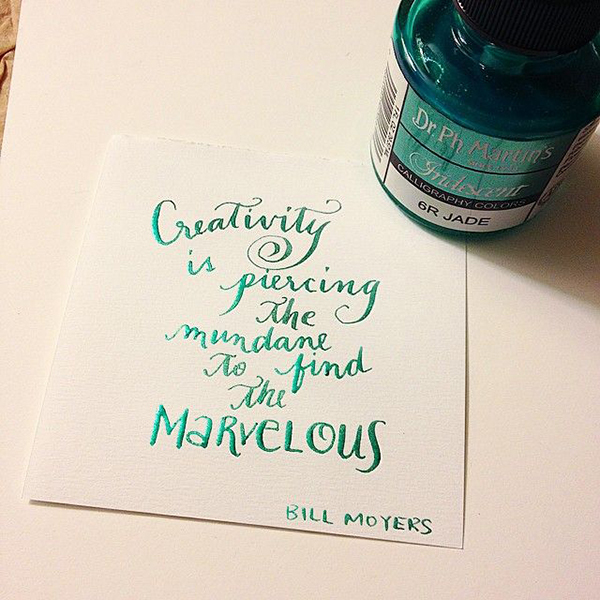 Creativity
is piercing
the
mundane
to find
the
MARVELOUS
BILL MOYERS
Dr. Ph. Martin's
Iridescent
CALLIGRAPHY COLORS
6R JADE